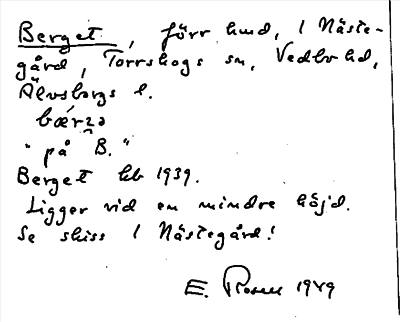 Berget, förr lund, i Näste-
gård, Torrskogs sn, Vedbo hd,
Älvsborgs l.
bærʒə
"på B."
Berget hb 1939.
Ligger vid en mindre höjd.
Se skiss i Nästegård!
E. Rosell 1949